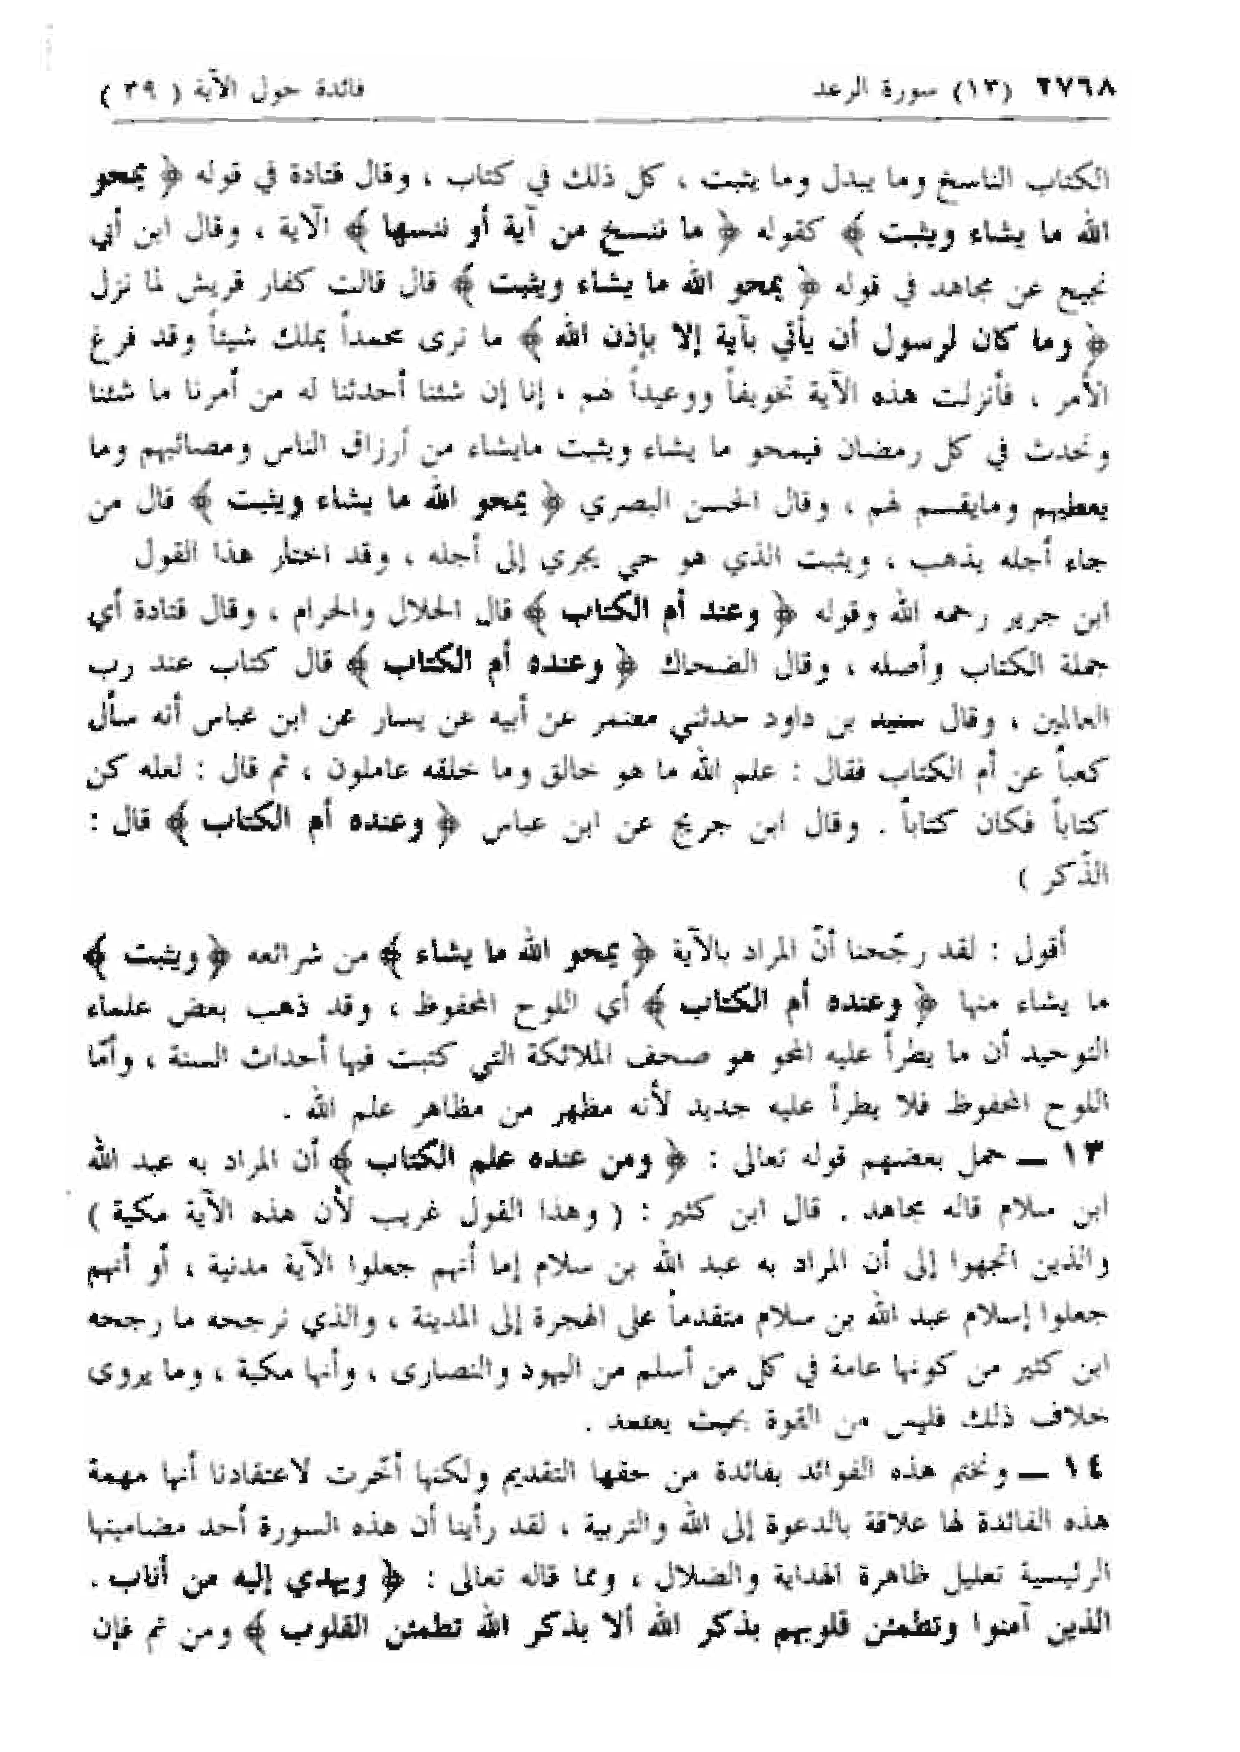 ٢٧٦٨ (١٣) سورة الرعد فائدة حول الآية ( ٣٩ )
الكتاب الناسخ وما يبدل وما يثبت ، كل ذلك في كتاب ، وقال قتادة في قوله ﴿ يمحو
الله ما يشاء ويثبت ﴾ كقوله ﴿ ما ننسخ من آية أو ننسها ﴾ الآية ، وقال ابن أبي
نجيح عن مجاهد في قوله ﴿ يمحو الله ما يشاء ويثبت ﴾ قال قالت كفار قريش لما نزل
﴿ وما كان لرسول أن يأتي بآية إلا بإذن الله ﴾ ما نرى محمداً يملك شيئاً وقد فرغ
الأمر ، فأنزلت هذه الآية تخويفاً ووعيداً لهم ، إنا إن شئنا أحدثنا له من أمرنا ما شئنا
ونحدث في كل رمضان فيمحو ما يشاء ويثبت مايشاء من أرزاق الناس ومصائبهم وما
يعطيهم ومايقسم لهم ، وقال الحسن البصري ﴿ يمحو الله ما يشاء ويثبت ﴾ قال من
جاء أجله يذهب ، ويثبت الذي هو حي يجري إلى أجله ، وقد اختار هذا القول
ابن جرير رحمه الله وقوله ﴿ وعند أم الكتاب ﴾ قال الحلال والحرام ، وقال قتادة أي
جملة الكتاب وأصله ، وقال الضحاك ﴿ وعنده أم الكتاب ﴾ قال كتاب عند رب
العالمين ، وقال سنيد بن داود حدثني معتمر عن أبيه عن يسار عن ابن عباس أنه سأل
كعباً عن أم الكتاب فقال : علم الله ما هو خالق وما خلقه عاملون ، ثم قال : لعلمه كن
كتاباً فكان كتاباً . وقال ابن جريج عن ابن عباس ﴿ وعنده أم الكتاب ﴾ قال :
الذّكر )
أقول : لقد رجّحنا أنّ المراد بالآية ﴿ يمحو الله ما يشاء ﴾ من شرائعه ﴿ ويثبت ﴾
ما يشاء منها ﴿ وعنده أم الكتاب ﴾ أي اللوح المحفوظ ، وقد ذهب بعض علماء
التوحيد أن ما يطرأ عليه المحو هو صحف الملائكة التي كتبت فيها أحداث السنة ، وأمّا
اللوح المحفوظ فلا يطرأ عليه جديد لأنه مظهر من مظاهر علم الله .
١٣ ـ حمل بعضهم قوله تعالى : ﴿ ومن عنده علم الكتاب ﴾ أن المراد به عبد الله
ابن سلام قاله مجاهد . قال ابن كثير : ( وهذا القول غريب لأن هذه الآية مكية )
والذين اتجهوا إلى أن المراد به عبد الله بن سلام إما أنهم جعلوا الآية مدنية ، أو أنهم
جعلوا إسلام عبد الله بن سلام متقدماً على الهجرة إلى المدينة ، والذي نرجحه ما رجحه
ابن كثير من كونها عامة في كل من أسلم من اليهود والنصارى ، وأنها مكية ، وما يروى
خلاف ذلك فليس من القوة بحيث يعتمد .
١٤ ـ ونختم هذه الفوائد بفائدة من حقها التقديم ولكنها أخّرت لاعتقادنا أنها مهمة
هذه الفائدة لها علاقة بالدعوة إلى الله والتربية ، لقد رأينا أن هذه السورة أحد مضامينها
الرئيسية تعليل ظاهرة الهداية والضلال ، ومما قاله تعالى : ﴿ ويهدي إليه من أناب .
الذين آمنوا وتطمئن قلوبهم بذكر الله ألا بذكر الله تطمئن القلوب ﴾ ومن ثم فإن